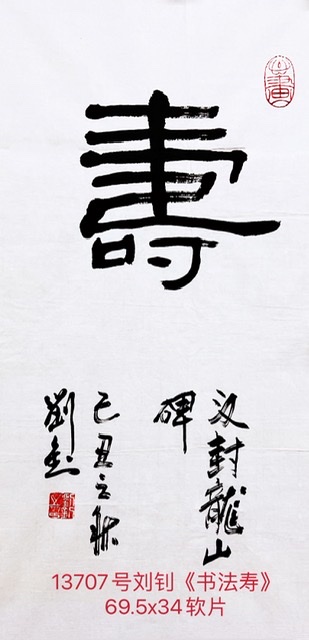 壽
汉封龍山
碑
己丑之秋
劉钊
13707号刘钊《书法寿》
69.5x34软片